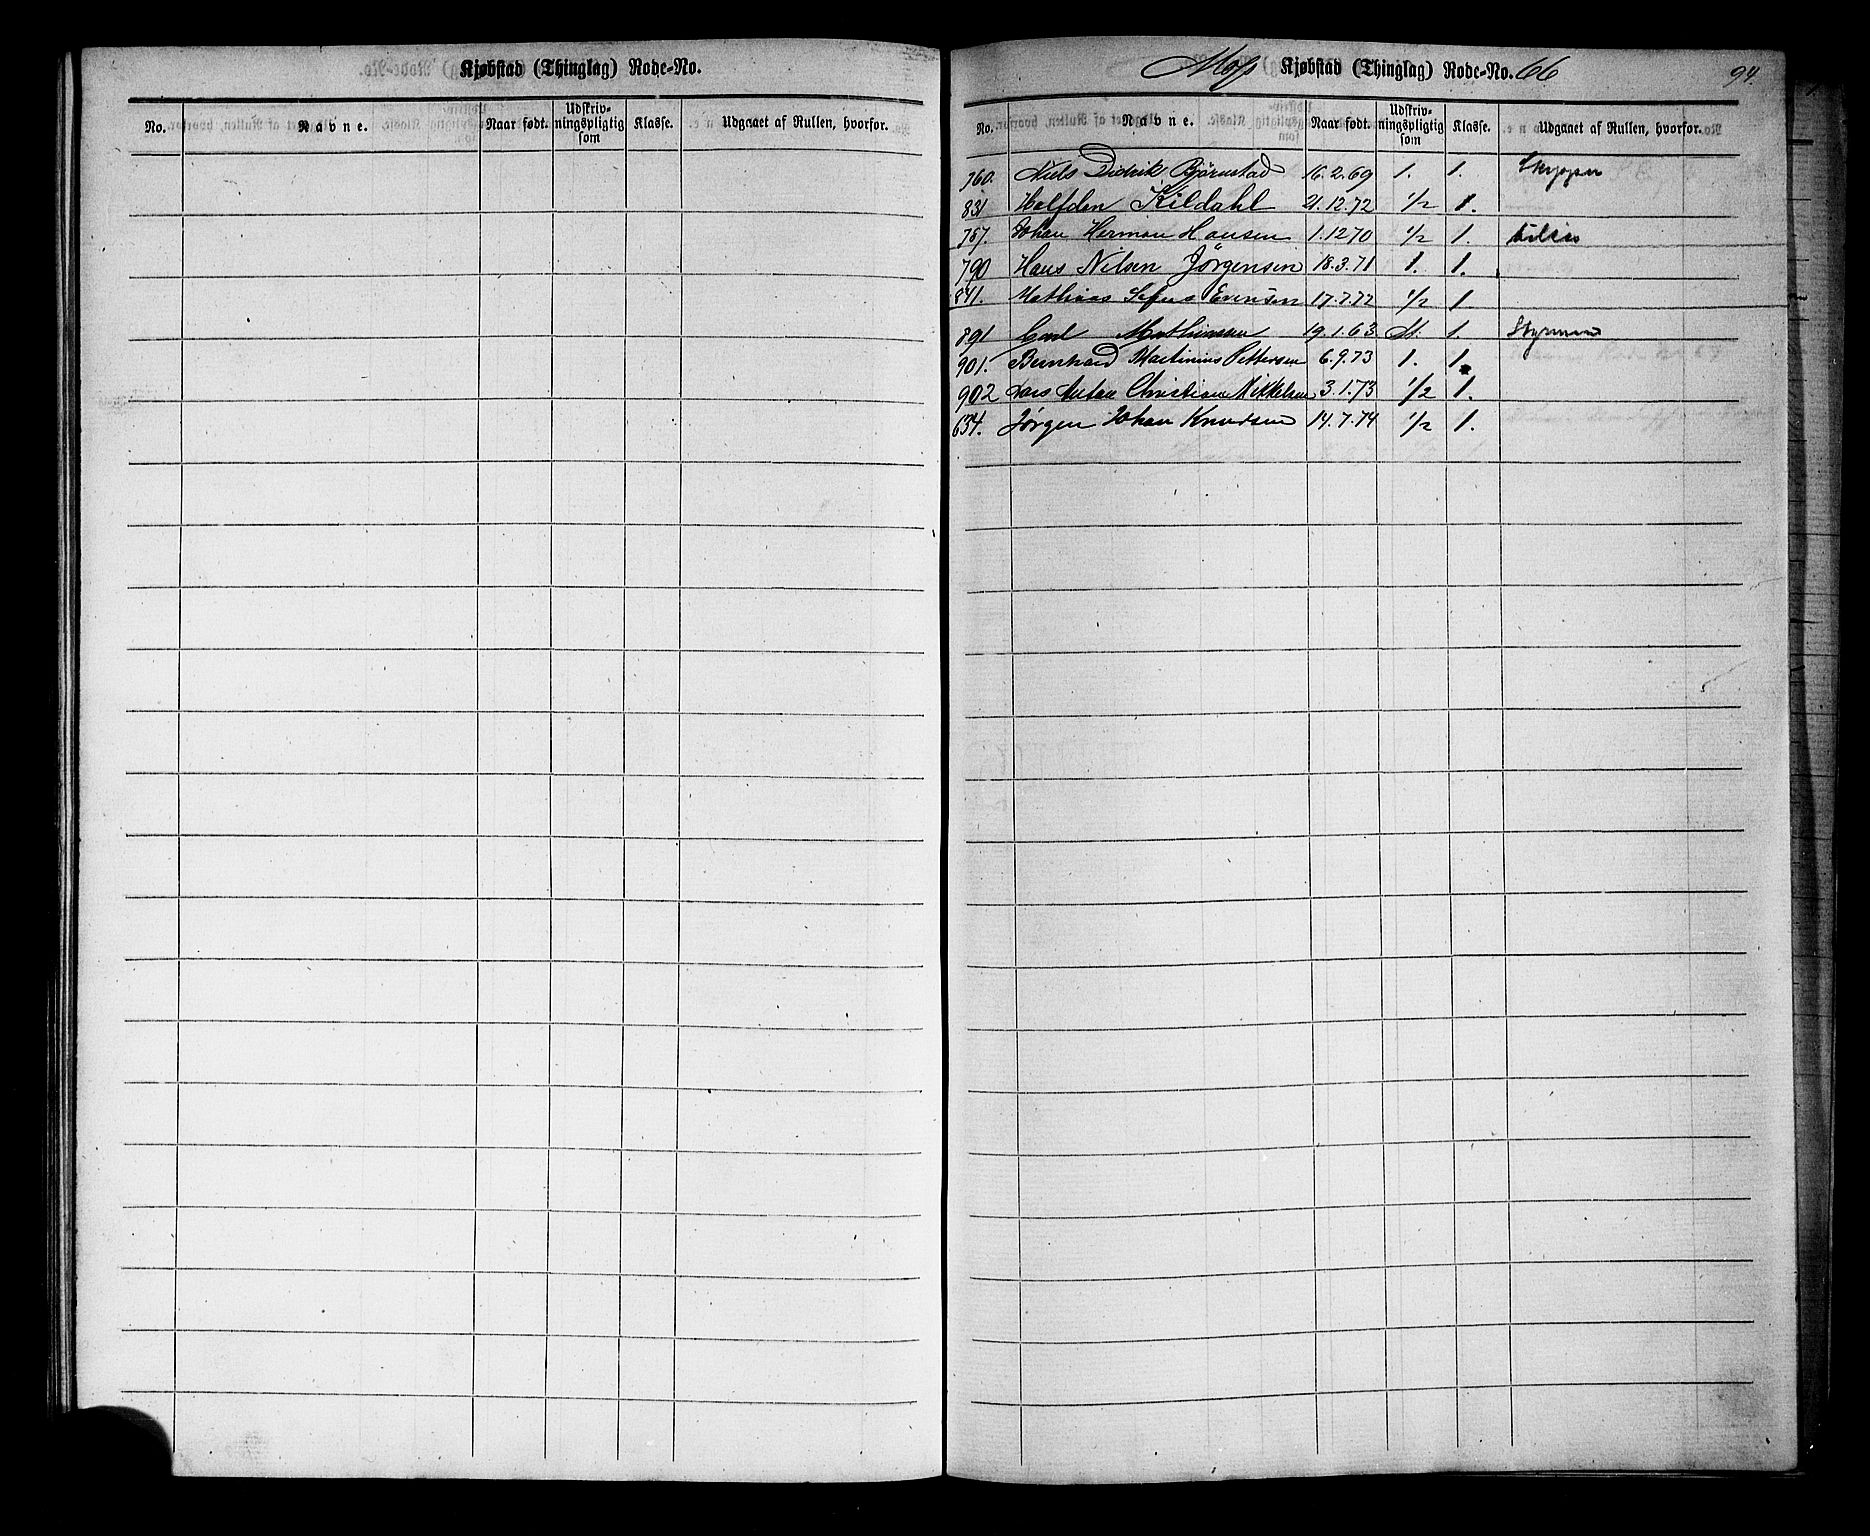 Kjøbstad (Thinglag) Rode-No.
No. Navne. Naar født. Udskriv-ningspligtig som Klasse. Udgaaet af Rullen, hvorfor.
Moss Kjøbstad (Thinglag) Rode-No. 66 94.
No. Navne. Naar født. Udskriv-ningspligtig som Klasse. Udgaaet af Rullen, hvorfor.
760. Niels Didrik Bjørnstad 16.2.69 1. 1. Skipper
831 Halfdan Kildahl 21.12.72 1/2 1.
767. Johan Herman Hansen 1.12 70 1/2 1.
790 Hans Nilsen Jørgensen 18.3.71 1. 1.
841. Mathias Sefus Evensen 17.7.72 1/2 1.
891 Carl Mathiesen 19.1.63 St. 1. Styrmand
901. Bernhard Martinius Pettersen 6.9.73 1. 1.
902 Lars Anton Christian Mikkelsen 3.1.73 1/2 1.
634. Jørgen Johan Knudsen 14.7.74 1/2 1.